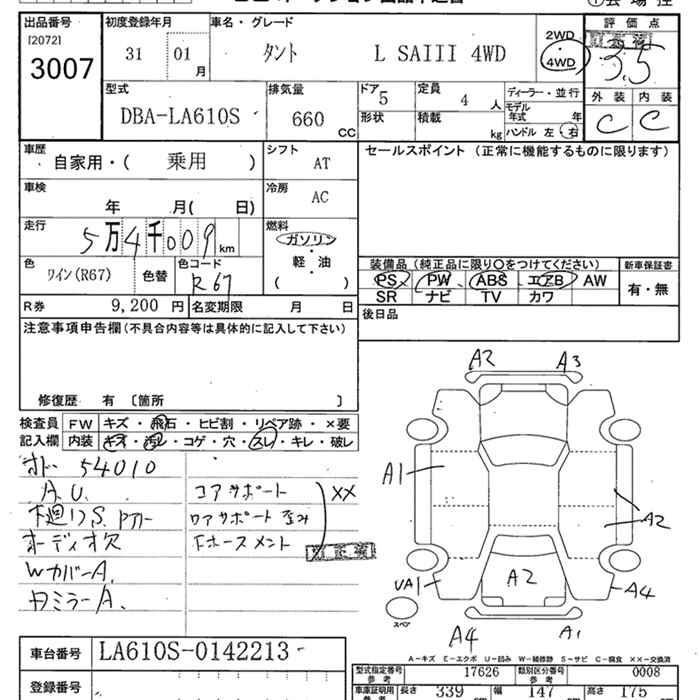 出品番号
[2072]
3007
初度登録年月
31 01 月
車名・グレード
タント L SAIII 4WD
2WD
4WD
評価点
3.5
外装 内装
C C
型式
DBA-LA610S
排気量
660 CC
ドア 5
定員 4 人
形状
積載 kg
ディーラー・並行
モデル年式 年
ハンドル 左 右
車歴
自家用・( 乗用 )
シフト
AT
セールスポイント (正常に機能するものに限ります)
車検
年 月( 日)
冷房
AC
走行
5万4千009 km
燃料
ガソリン
軽・油
( )
色
ワイン(R67)
色替
色コード
R67
装備品(純正品に限り○をつけてください)
PS PW ABS エアB AW
SR ナビ TV カワ
新車保証書
有・無
R券 9,200 円
名変期限 月 日
後日品
注意事項申告欄(不具合内容等は具体的に記入して下さい)
修復歴 有 〔箇所 〕
検査員記入欄
FW キズ・飛石・ヒビ割・リペア跡・×要
内装 キズ・汚レ・コゲ・穴・スレ・キレ・破レ
オド 54010
A.U.
下廻りS.
オーディオ欠
WカバーA.
ミラーA.
コアサポート
ロアサポート歪み
Fホースメント
XX
A2 A3
A1
A2
A2
UA1
A4
A4
A1
スペア
A-キズ E-エクボ U-凹み W-補修跡 S-サビ C-腐食 ××-交換済
車台番号
LA610S-0142213
登録番号
型式指定番号 参考 17626
類別区分番号 参考 0008
車庫証明用 参考 長さ 339 幅 147 高さ 175